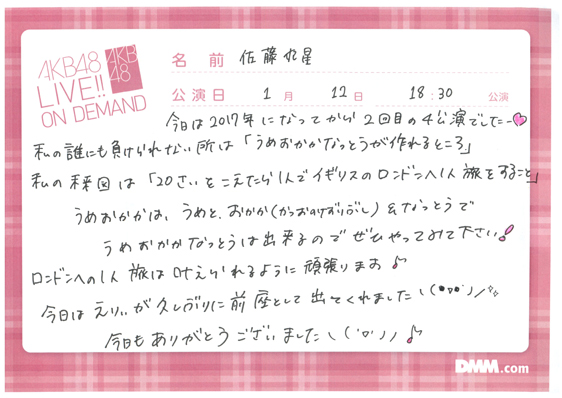 AKB48
LIVE!!
ON DEMAND
AKB
48
名 前 佐藤妃星
公演日 1月 12日 18:30 公演
今日は2017年になってから2回目の4公演でしたー
私の誰にも負けられない所は「うめおかかなっとうが作れるところ」
私の未来図は「20さいをこえたら1人でイギリスのロンドンへ1人旅をすること」
うめおかかは、うめと、おかか(かつおのけずりぶし)&なっとうで
うめおかかなっとうは出来るのでぜひやってみて下さい!
ロンドンへの1人旅は叶えられるように頑張ります♪
今日はえりぃが久しぶりに前座として出てくれました\(●▽●)/
今日もありがとうございました\(˙▽˙)ノ♪
DMM.com